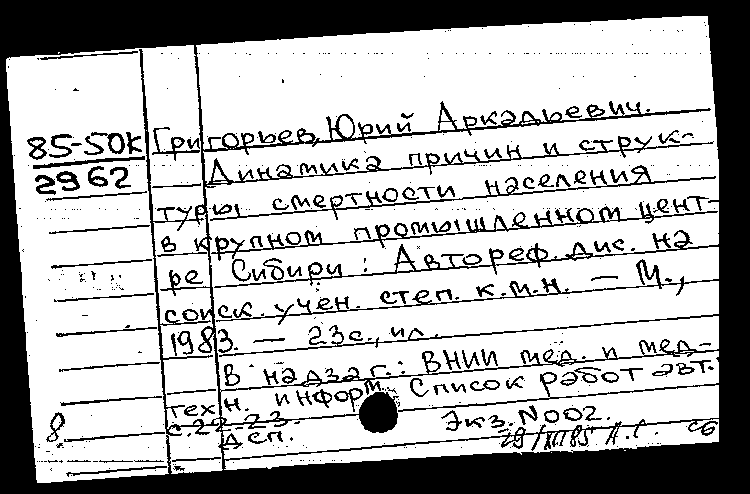 85-50К Григорьев, Юрий Аркадьевич.
2962 Динамика причин и струк-
туры смертности населения
в крупном промышленном цент-
ре Сибири: Автореф. дис. на
соиск. учен. степ. к.м.н. — М.,
1983. — 23с., ил.
В надзаг.: ВНИИ мед. и мед-
техн. информ. Список работ авт.:
с.22-23.
8 Дсп. Экз. N002.
29/XII85 А.С. сб